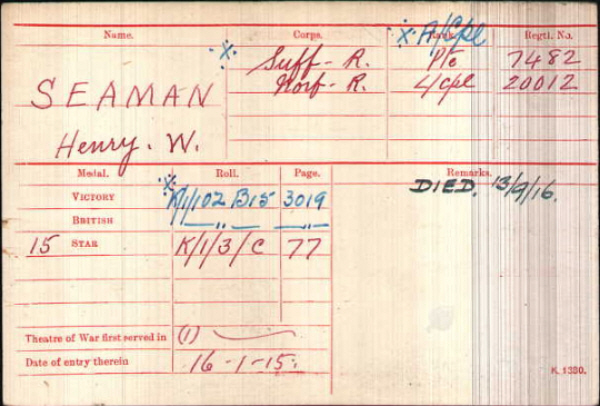 Name. Corps. Rank. Regtl. No.
X. X. A/Cpl
SEAMAN Suff- R. Pte 7482
Norf- R. L/Cpl 20012
Henry. W.
Medal. Roll. Page. Remarks.
X.
VICTORY K/1/102 B15 3019 DIED. 13/9/16.
BRITISH —„— —„—
15 STAR K/1/3/C 77
Theatre of War first served in (1)
Date of entry therein 16-1-15.
K. 1380.